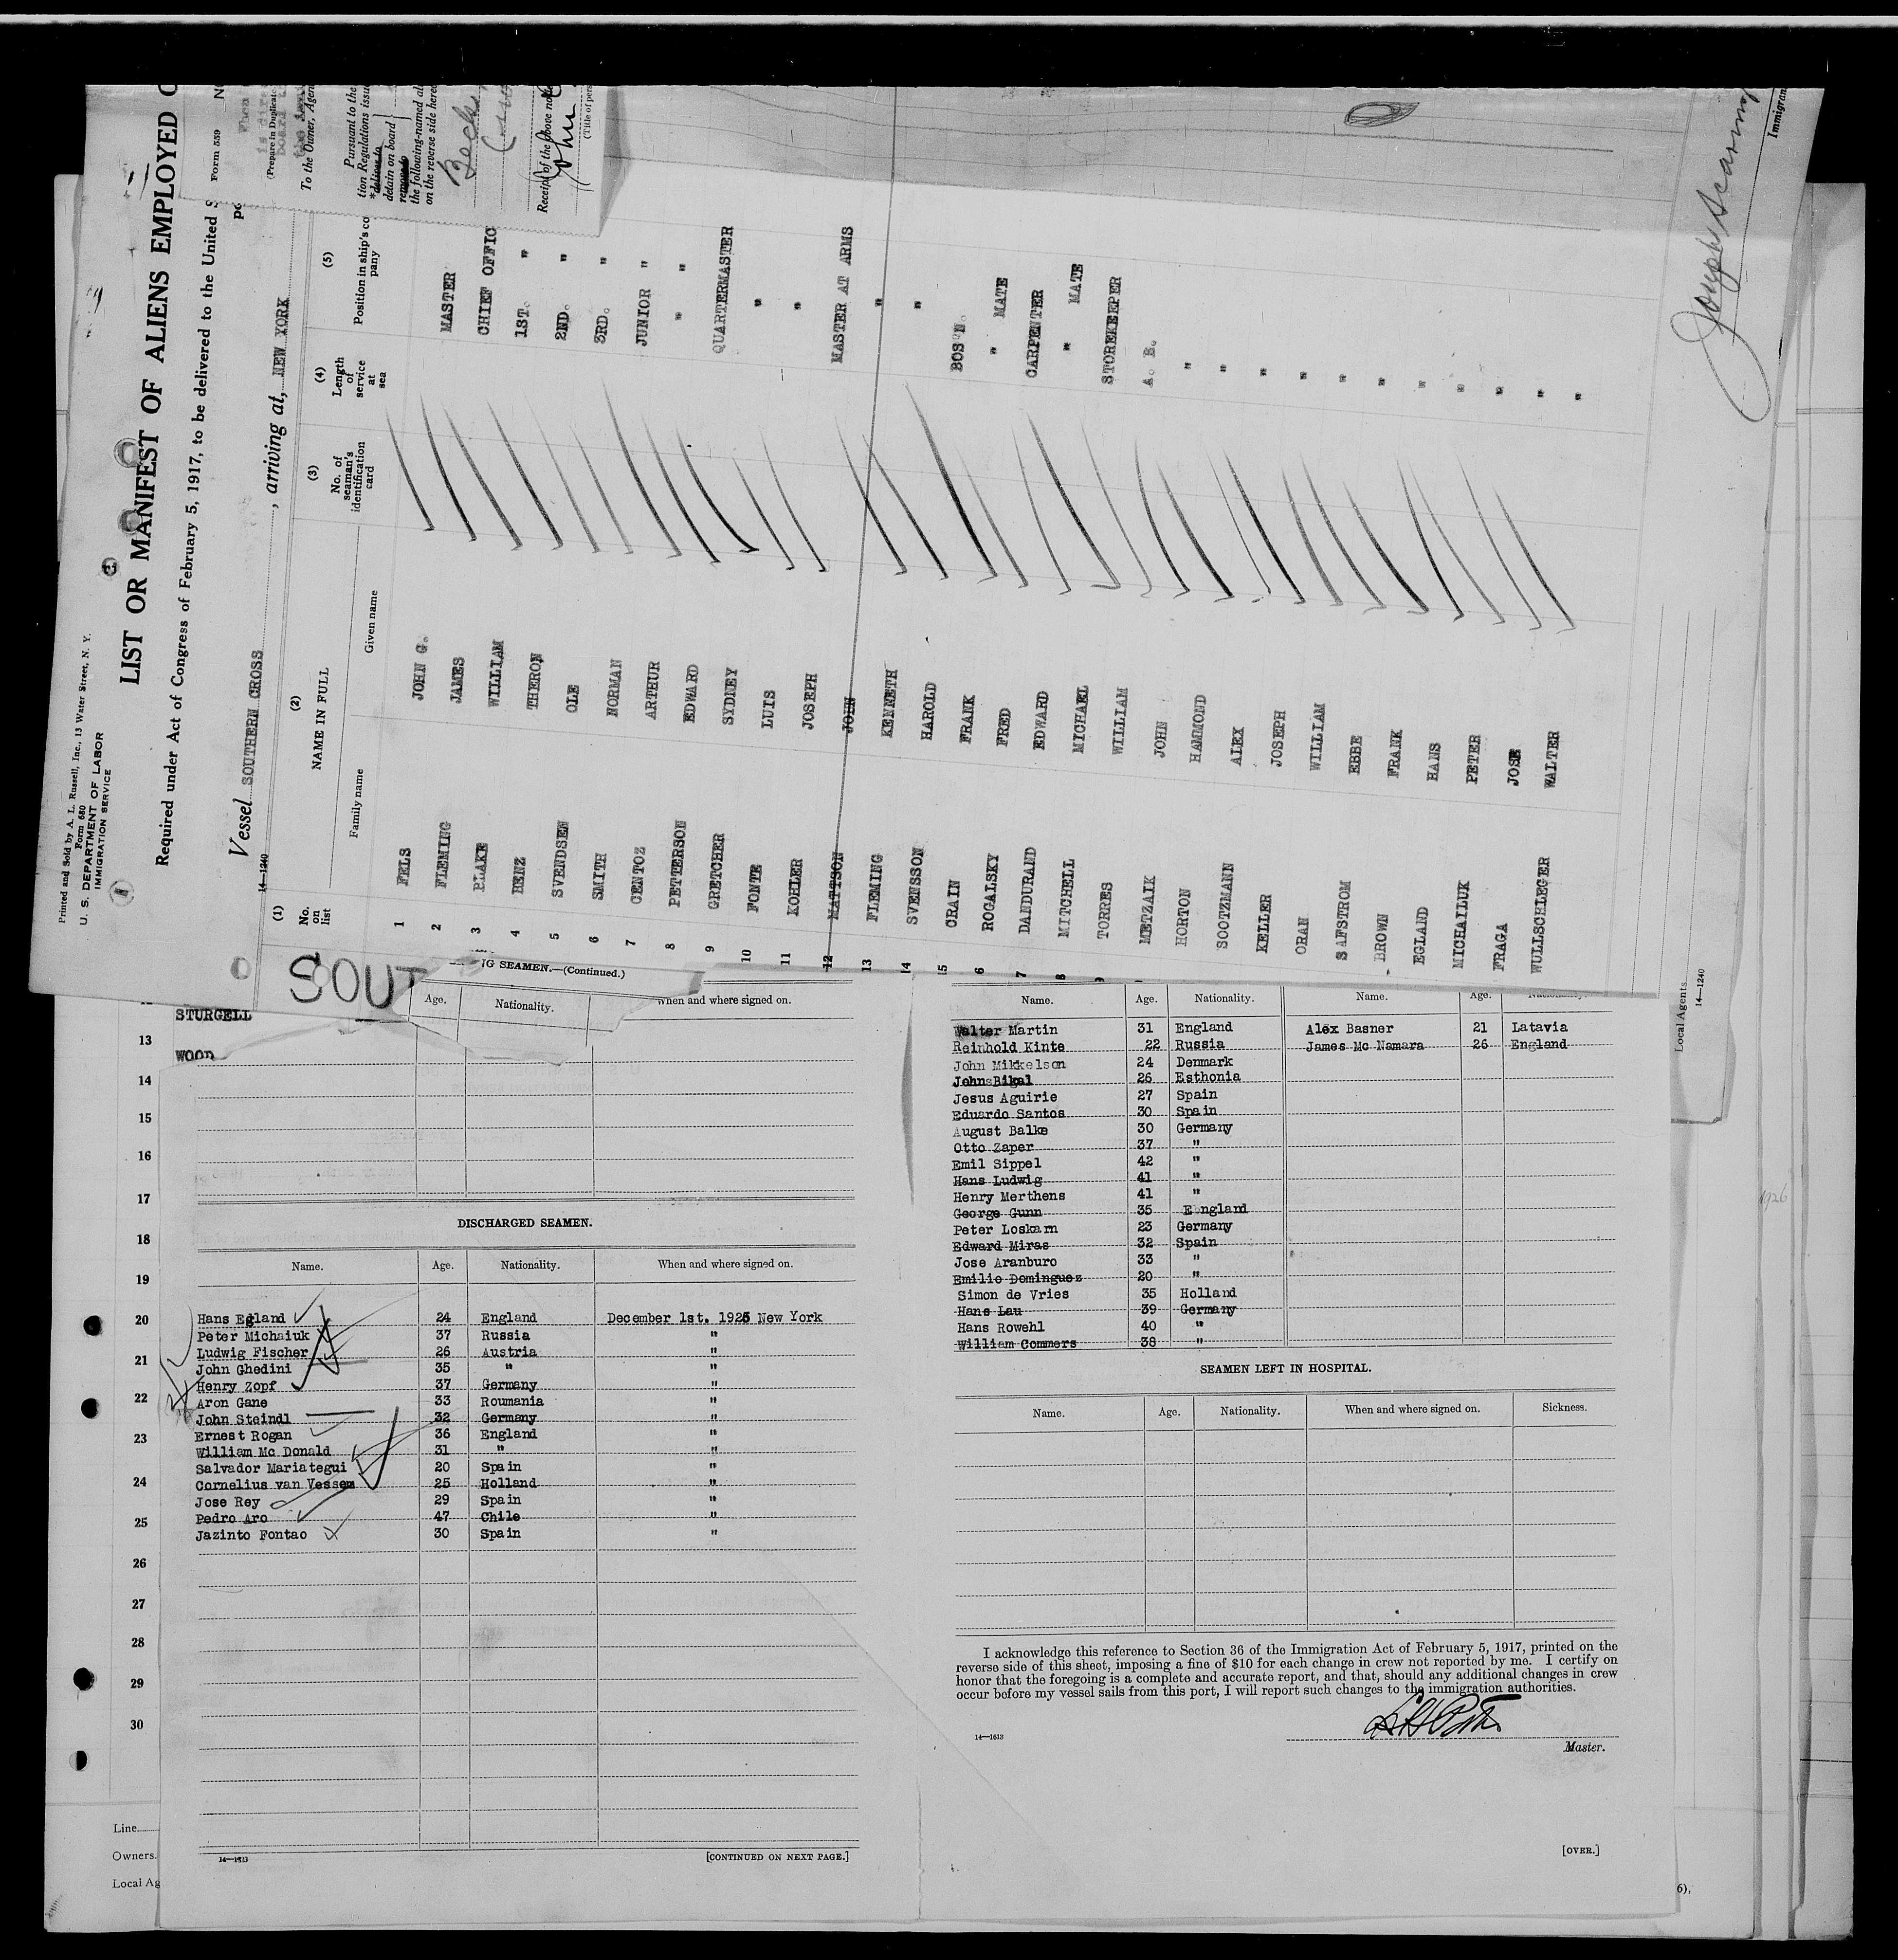 Printed and Sold by A. L. Russell, Inc., 13 Water Street, N. Y.
Form 680
U. S. DEPARTMENT OF LABOR
IMMIGRATION SERVICE
LIST OR MANIFEST OF ALIENS EMPLOYED O
Required under Act of Congress of February 5, 1917, to be delivered to the United S
Vessel SOUTHERN CROSS, arriving at, NEW YORK
14—1240
(1) No. on list
(2) NAME IN FULL
Family name Given name
(3) No. of seaman's identification card
(4) Length of service at sea
(5) Position in ship's co pany
1 FELS JOHN G. MASTER
2 FLEMING JAMES CHIEF OFFIC
3 BLAKE WILLIAM 1ST. "
4 BENZ THERON 2ND. "
5 SVENDSEN OLE 3RD. "
6 SMITH NORMAN JUNIOR "
7 CENTOZ ARTHUR " "
8 PETTERSON EDWARD QUARTERMASTER
9 GRETCHER SYDNEY "
10 FONTE LUIS "
11 KOHLER JOSEPH MASTER AT ARMS
12 MATTSON JOHN "
13 FLEMING KENNETH "
14 SVENSSON HAROLD BOS'N.
15 CRAIN FRANK " MATE
6 ROGALSKY FRED CARPENTER
7 DANDURAND EDWARD " MATE
8 MITCHELL MICHAEL STOREKEEPER
9 TORRES WILLIAM A. B.
METZAIK JOHN "
HORTON HAMMOND "
SOOTZMANN ALEX "
KELLER JOSEPH "
ORAN WILLIAM "
SAFSTROM EBBE "
BROWN FRANK "
EGLAND HANS "
MICHAILUK PETER "
FRAGA JOSE "
WULLSCHLEGER WALTER "
14—1240
Form 559
(Prepare in Duplicate
To the Owner, Agen
Pursuant to the
tion Regulations issu
detain on board
the following-named al
on the reverse side here
Receipt of the above no
John
(Title of pers
Immigran
Local Agents
SOUT
NG SEAMEN.—(Continued.)
Age. Nationality. When and where signed on.
STURGELL
WOOD
13
14
15
16
17
18
19
20
21
22
23
24
25
26
27
28
29
30
DISCHARGED SEAMEN.
Name. Age. Nationality. When and where signed on.
Hans Egland 24 England December 1st. 1925 New York
Peter Michaiuk 37 Russia "
Ludwig Fischer 26 Austria "
John Ghedini 35 " "
Henry Zopf 37 Germany "
Aron Gane 33 Roumania "
John Steindl 32 Germany "
Ernest Rogan 36 England "
William Mc Donald 31 " "
Salvador Mariategui 20 Spain "
Cornelius van Vessem 25 Holland "
Jose Rey 29 Spain "
Pedro Aro 47 Chile "
Jazinto Fontao 30 Spain "
14—1613
[CONTINUED ON NEXT PAGE.]
Line
Owners.
Local Ag
Name. Age. Nationality. Name. Age. Nationality.
Walter Martin 31 England Alex Basner 21 Latavia
Reinhold Kinte 22 Russia James Mc Namara 26 England
John Mikkelson 24 Denmark
John Bikal 26 Esthonia
Jesus Aguirie 27 Spain
Eduardo Santos 30 Spain
August Balke 30 Germany
Otto Zaper 37 "
Emil Sippel 42 "
Hans Ludwig 41 "
Henry Merthens 41 "
George Gunn 35 England
Peter Loskarn 23 Germany
Edward Miras 32 Spain
Jose Aranburo 33 "
Emilio Dominguez 20 "
Simon de Vries 35 Holland
Hans Lau 39 Germany
Hans Rowehl 40 "
William Commers 38 "
SEAMEN LEFT IN HOSPITAL.
Name. Age. Nationality. When and where signed on. Sickness.
I acknowledge this reference to Section 36 of the Immigration Act of February 5, 1917, printed on the
reverse side of this sheet, imposing a fine of $10 for each change in crew not reported by me. I certify on
honor that the foregoing is a complete and accurate report, and that, should any additional changes in crew
occur before my vessel sails from this port, I will report such changes to the immigration authorities.
14—1613
Master.
[OVER.]
1926
6),